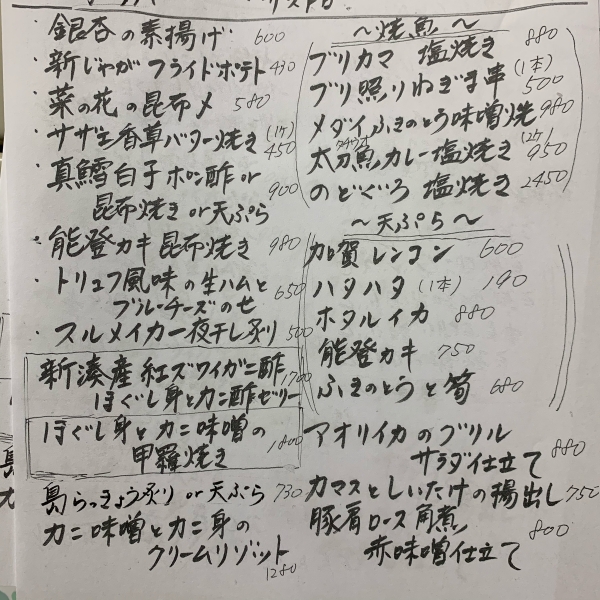 銀杏の素揚げ 600
・新じゃがフライドポテト 430
・菜の花の昆布〆 580
・サザエ香草バター焼き (1ケ) 450
・真鱈白子ポン酢or
昆布焼きor天ぷら 900
・能登カキ昆布焼き 980
・トリュフ風味の生ハムと
ブルーチーズのせ 650
・スルメイカ一夜干し炙り 500
新湊産紅ズワイガニ酢
ほぐし身とカニ酢ゼリー 1700
ほぐし身とカニ味噌の
甲羅焼き 1800
島らっきょう炙りor天ぷら 730
カニ味噌とカニ身の
クリームリゾット
1280
〜焼魚〜
ブリカマ 塩焼き 880
ブリ照りねぎま串 (1本) 500
メダイふきのとう味噌焼 980
太刀魚カレー塩焼き (2ケ) 950
のどぐろ 塩焼き 2450
〜天ぷら〜
加賀レンコン 600
ハタハタ (1本) 190
ホタルイカ 880
能登カキ 750
ふきのとうと筍 680
アオリイカのグリル
サラダ仕立て 880
カマスとしいたけの揚出し 750
豚肩ロース角煮
赤味噌仕立て 800